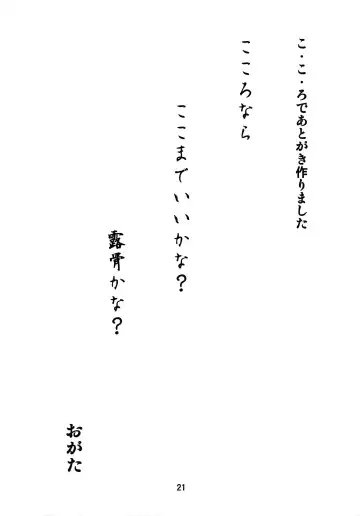 こ・こ・ろであとがき作りました
こころなら
ここまでいいかな？
露骨かな？
おがた
21